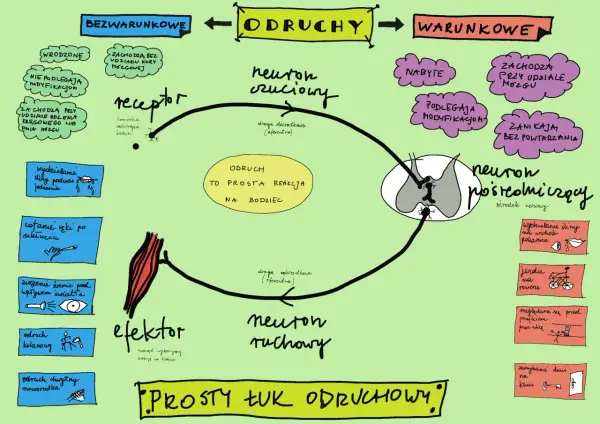 BEZWARUNKOWE
ODRUCHY
WARUNKOWE
WRODZONE
ZACHODZĄ BEZ
UDZIAŁU KORY
MÓZGOWEJ
NIE PODLEGAJĄ
MODYFIKACJOM
ZACHODZĄ PRZY
UDZIALE RDZENIA
KRĘGOWEGO LUB
PNIA MÓZGU
NABYTE
ZACHODZĄ
PRZY UDZIALE
MÓZGU
PODLEGAJĄ
MODYFIKACJOM
ZANIKAJĄ
BEZ POWTARZANIA
receptor
neuron
czuciowy
droga dośrodkowa
(aferentna)
ODRUCH
TO PROSTA REAKCJA
NA BODZIEC
neuron
pośredniczący
ośrodek nerwowy
droga odśrodkowa
(eferentna)
neuron
ruchowy
efektor
narząd wykonawczy
wydzielanie
śliny podczas
jedzenia
cofanie ręki po
ukłuciu
zwężenie źrenic pod
wpływem światła
odruch
kolanowy
odruch chwytny
noworodka
wydzielanie śliny
na widok
pokarmu
jazda
na
rowerze
rozglądanie się przed
przejściem
przez ulicę
zamykanie drzwi
na
klucz
PROSTY ŁUK ODRUCHOWY